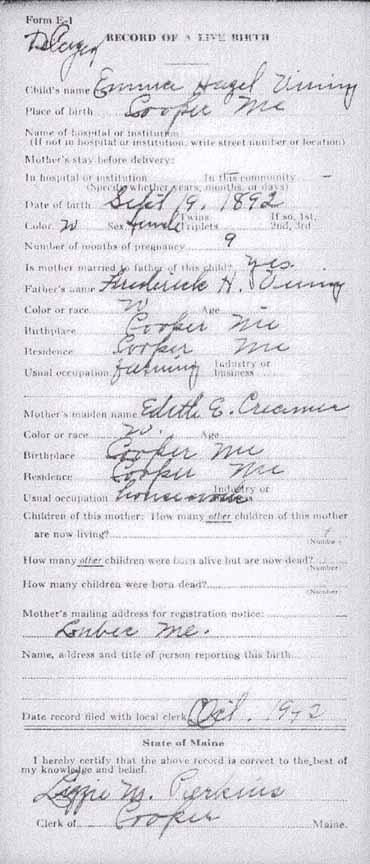 Form E-1
Delayed
RECORD OF A LIVE BIRTH
Child's name Emma Hazel Vining
Place of birth Cooper Me
Name of hospital or institution
(If not in hospital or institution, write street number or location)
Mother's stay before delivery:
In hospital or institution In this community -
(Specify whether years, months, or days)
Date of birth Sept 19, 1892
Color W Sex female Twins Triplets If so, 1st, 2nd, 3rd
Number of months of pregnancy 9
Is mother married to father of this child? yes.
Father's name Frederick H. Vining
Color or race W Age
Birthplace Cooper Me
Residence Cooper Me
Usual occupation farming Industry or business
Mother's maiden name Edith E. Creamer
Color or race W. Age
Birthplace Cooper Me
Residence Cooper Me
Usual occupation housework Industry or business
Children of this mother: How many other children of this mother
are now living?
(Number)
How many other children were born alive but are now dead?
(Number)
How many children were born dead?
(Number)
Mother's mailing address for registration notice:
Lubec Me.
Name, address and title of person reporting this birth
Date record filed with local clerk Oct. 1942
State of Maine
I hereby certify that the above record is correct to the best of
my knowledge and belief.
Lizzie M. Perkins
Clerk of Cooper Maine.